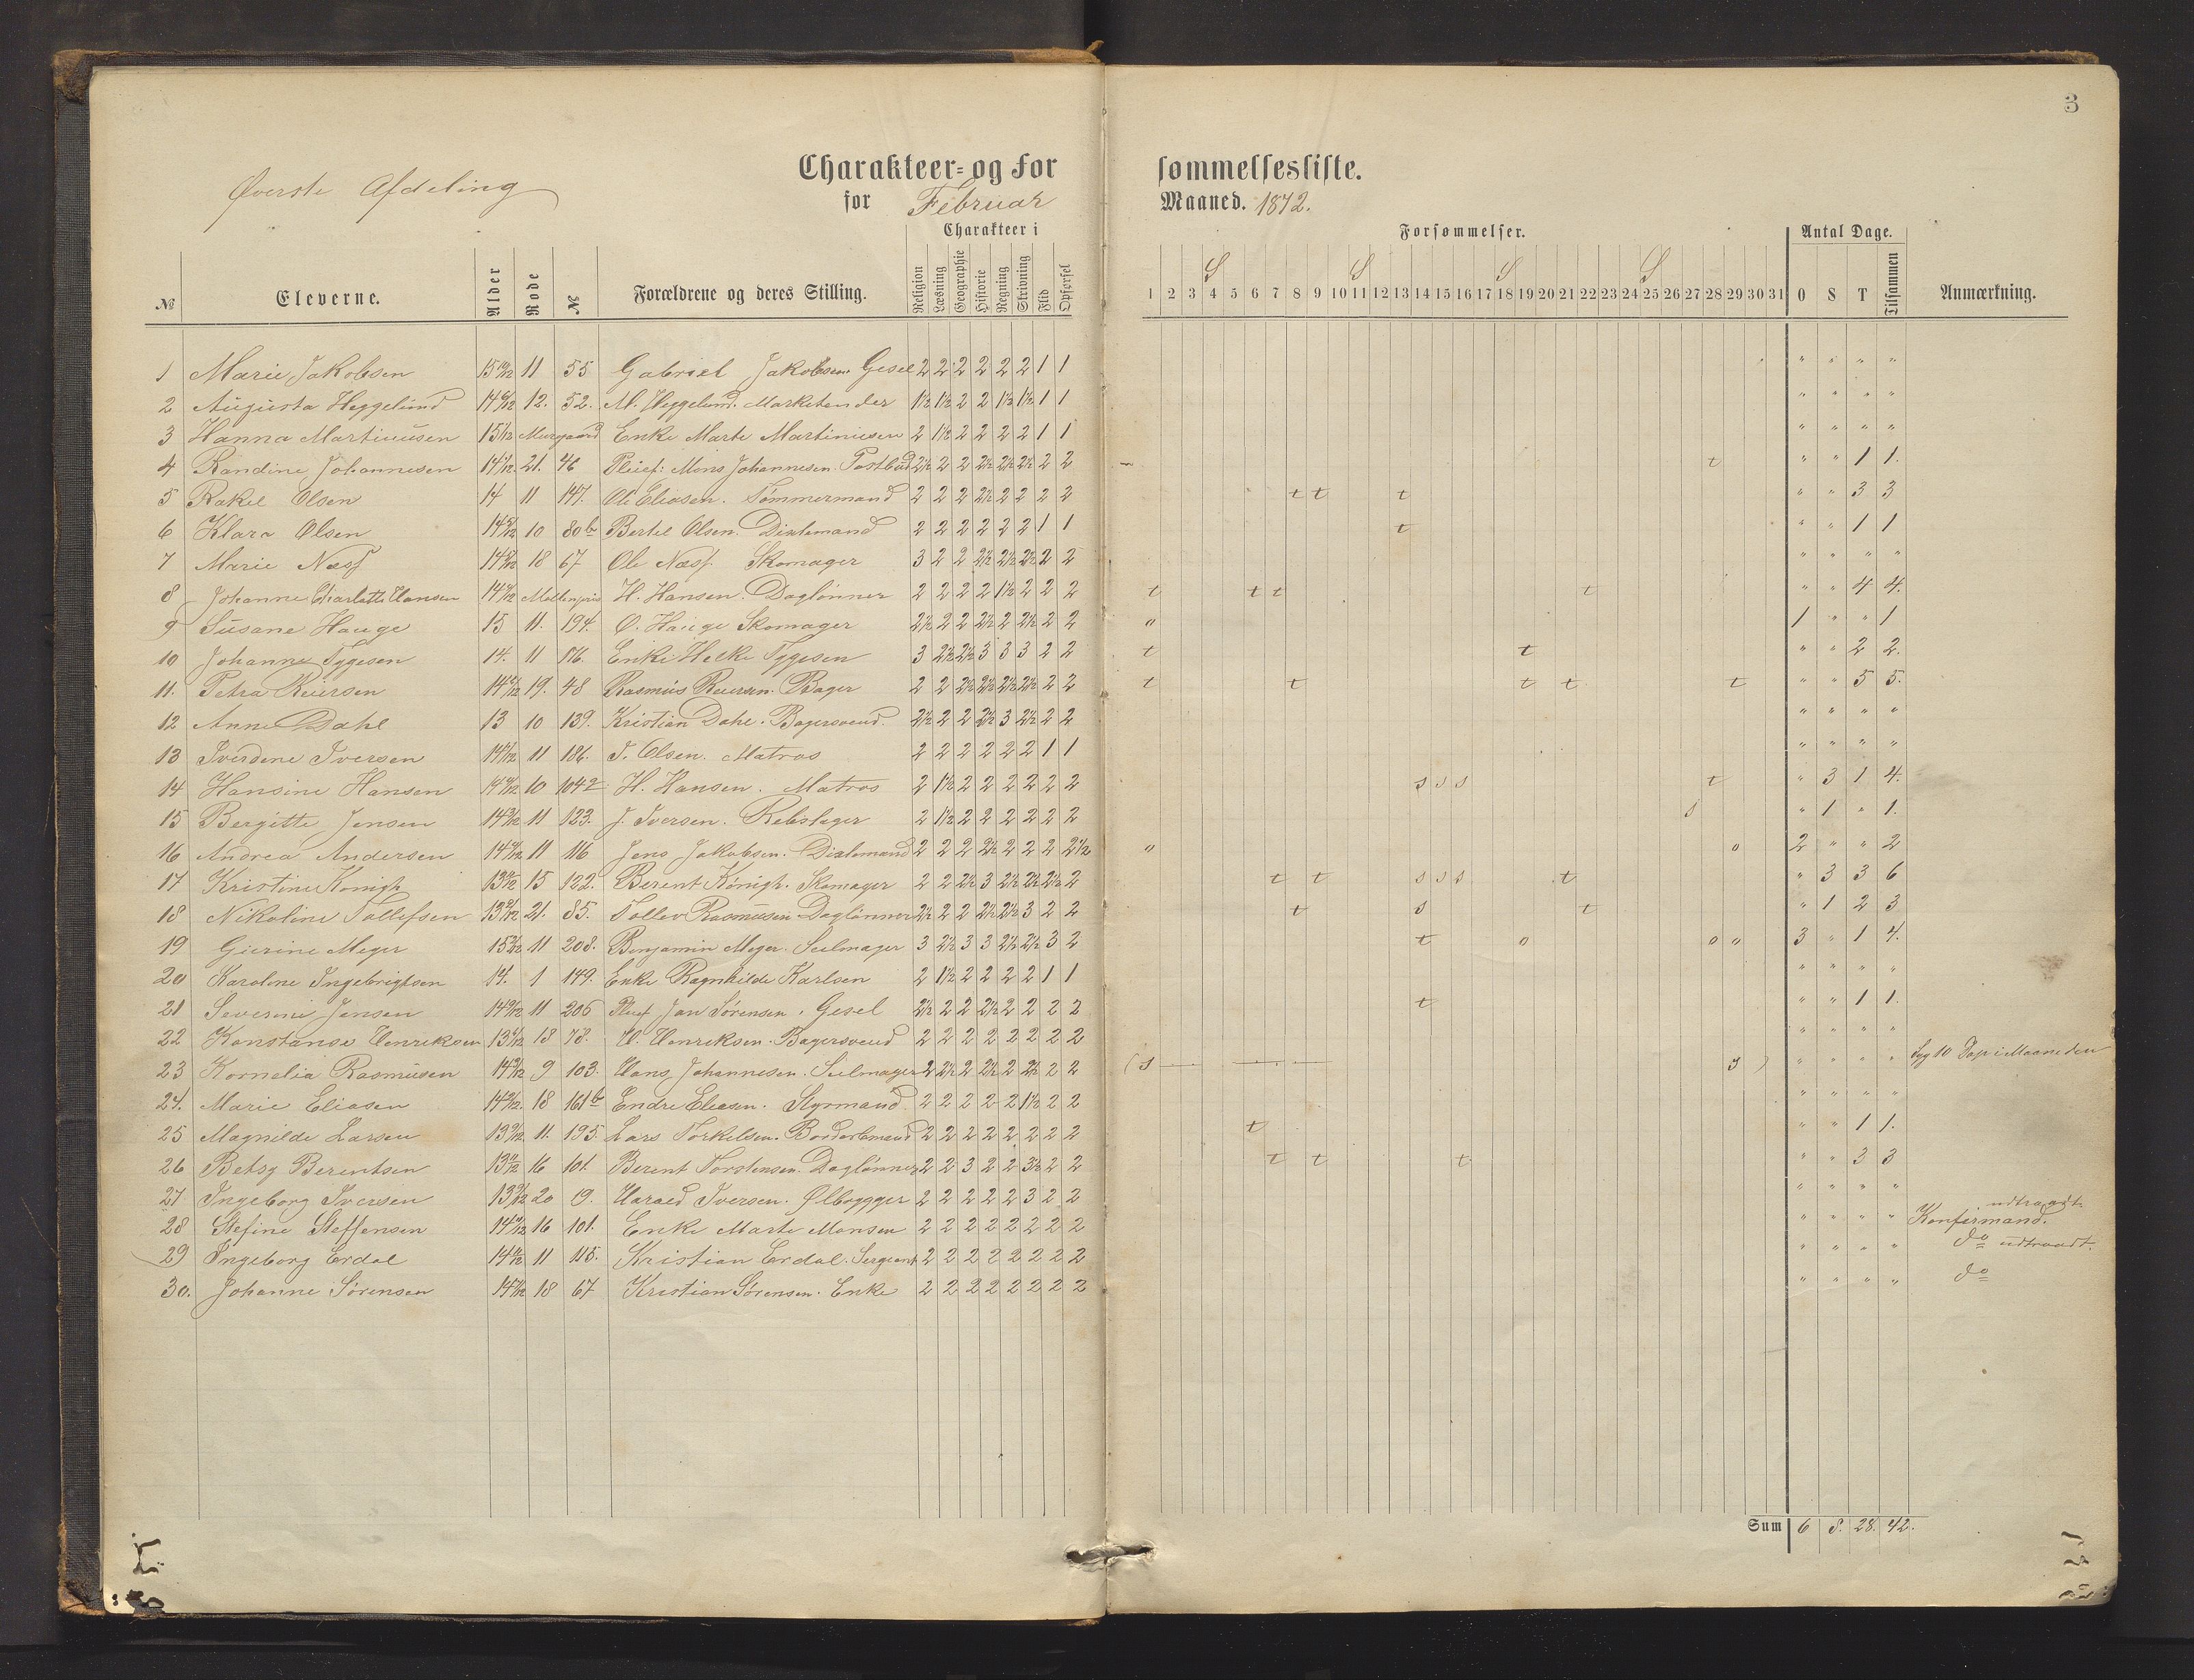 3
Øverste Afdeling
Charakteer- og Forsømmelsesliste.
for Februar Maaned. 1872.
Charakteer i Forsømmelser. Antal Dage.
S S S S
№ Eleverne. Alder Rode № Forældrene og deres Stilling. Religion Læsning Geographie Historie Regning Skrivning Flid Opførsel 1 2 3 4 5 6 7 8 9 10 11 12 13 14 15 16 17 18 19 20 21 22 23 24 25 26 27 28 29 30 31 O S T Tilsammen Anmærkning.
1 Marie Jakobsen 11 55 Gabriel Jakobsen Gesel 2 2 2 2 2 2 1 1 " " " "
2 Augusta Heggelund 12. 52. M. Heggelund. Marketender 1½ 1½ 2 2 1½ 1½ 1 1 " " " "
3 Hanna Martinusen 15 1/12 Murgaard Enke Marte Martinusen 2 1½ 2 2 2 2 1 1 " " " "
4 Randine Johannesen 14 1/12 21. 46 Pleief: Mons Johannesen. Postbud 2½ 2 2 2½ 2½ 2½ 2 2 t " " 1 1.
5 Rakel Olsen 14 11 147. Ole Eliasen. Tømmermand 2 2 2 2½ 2 2 2 2 t t t " " 3 3
6 Klara Olsen 10 80b Bertel Olsen. Dixlemand 2 2 2 2 2 2 1 1 t " " 1 1
7 Marie Næss 18 67 Ole Næss. Skomager 3 2 2 2½ 2½ 2½ 2 2 " " " "
8 Johanne Charlotte Hansen Møllenpris H. Hansen. Daglønner 2 2 2 2 1½ 2 2 2 t t t t " " 4 4.
9 Susane Hauge 15 11. 194. O. Hauge Skomager 2½ 2 2 2½ 2 2½ 2 2 o 1 " " 1
10 Johanne Tygesen 14. 11 Enke Helke Tygesen 3 2½ 2½ 3 3 3 2 2 t t " " 2 2.
11. Petra Reiersen 19. 48 Rasmus Reiersen. Bager 2 2 2½ 2½ 2½ 2½ 2 2 t t t t t " " 5 5.
12 Anne Dahl 13 10 139. Kristian Dahl. Bagersvend. 2½ 2 2 2½ 3 2½ 2 2 " " " "
13 Iverdine Iversen 11 186. T. Olsen. Matros 2 2 2 2 2 2 1 1 " " " "
14 Hansine Hansen 10 104 H. Hansen. Matros 2 1½ 2 2 2 2 2 2 s s s t " 3 1 4.
15 Bergitte Jensen 11 123. J. Iversen. Rebslager 2 1½ 2 2 2 2 2 2 s " 1 " 1.
16 Andrea Andersen 11 116 Jens Jakobsen. Dixlemand 2 2 2 2½ 2 2 2 2½ o o 2 " " 2
17 Kristine Königh 15 122. Berent Königh. Skomager 2 2 2½ 3 2½ 2½ 2½ 2 t t s s s t " 3 3 6
18 Nikoline Tollefsen 21. 85. Tollev Rasmussen Daglønner 2½ 2 2 2½ 2½ 3 2 2 t s t " 1 2 3
19 Gierine Meyer 11 208. Benjamin Meyer. Seilmager 3 2½ 3 3 2½ 2½ 3 2 t o o o 3 " 1 4.
20 Karoline Ingebrigtsen 14. 1 149. Enke Ragnhilde Karlsen 2 1½ 2 2 2 2 1 1 " " " "
21 Severine Jensen 11 206 Pleief Jan Sørensen. Gesel 2½ 2 2 2½ 2 2 2 2 t " " 1 1.
22 Konstanse Henriksen 18 78. H. Henriksen. Bagersvend 2 2 2 2 2 2 2 2 " " " "
23 Kornelia Rasmusen 9 103. Hans Johannesen. Seilmager 2 2½ 2 2½ 2 2½ 2 2 (s s) " " " " Syg 10 Dage i Maaneden
24. Marie Eliasen 18 161b Endre Eliasen. Styrmand 2 2 2 2 2 1½ 2 2 " " " "
25 Magnilde Larsen 11. 195. Lars Torkelsen. 2 2 2 2 2 2 2 2 t " " 1 1.
26 Betsy Berentsen 16 101. Berent Torstensen. Daglønner 2 2 3 2 2 3½ 2 2 t t t " " 3 3
27 Ingeborg Iversen 20 9. Harald Iversen. Ølbrygger 2 2 2 2 2 3 2 2 " " " "
28 Stefine Steffensen 16 101. Enke Marte Monsen 2 2 2 2 2 2 2 2 " " " " Konfirmand. udtraadt.
29 Ingeborg Erdal 11 115. Kristian Erdal. Sergeant 2 2 2 2 2 2 2 2 " " " " do udtraadt.
30. Johanne Sørensen 18 67 Kristian Sørensen. Enke 2 2 2 2 2 2 2 2 " " " " do
Sum 6 8. 28. 42.